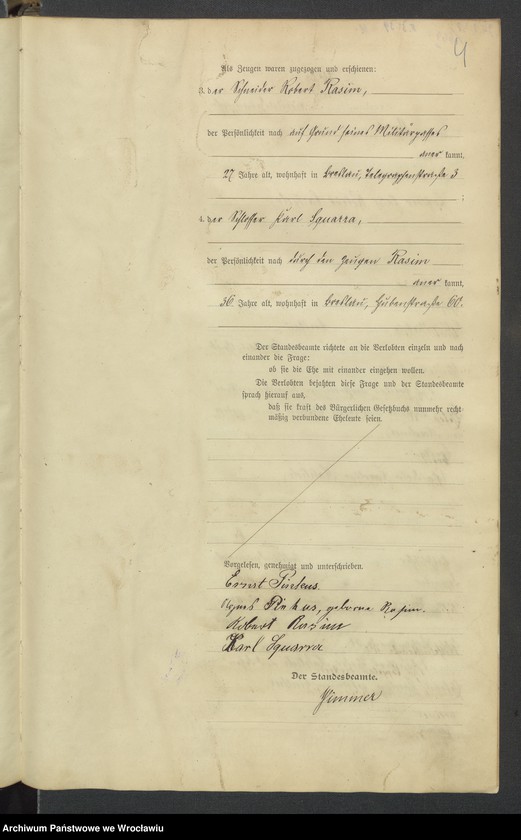 4
Als Zeugen waren zugezogen und erschienen:
3. der Schneider Robert Rasim,
der Persönlichkeit nach auf Grund seines Militärpasses
aner kannt,
27 Jahre alt, wohnhaft in Breslau, Telegraphenstraße 3
;
4. der Schlosser Karl Squarra,
der Persönlichkeit nach durch den Zeugen Rasim
aner kannt,
36 Jahre alt, wohnhaft in Breslau, Hubenstraße 60.
Der Standesbeamte richtete an die Verlobten einzeln und nach
einander die Frage:
ob sie die Ehe mit einander eingehen wollen.
Die Verlobten bejahten diese Frage und der Standesbeamte
sprach hierauf aus,
daß sie kraft des Bürgerlichen Gesetzbuchs nunmehr recht-
mäßig verbundene Eheleute seien.
Vorgelesen, genehmigt und unterschrieben.
Ernst Pinkus.
Agnes Pinkus, geborne Rasim.
Robert Rasim
Karl Squarra
Der Standesbeamte.
Zimmer
Archiwum Państwowe we Wrocławiu